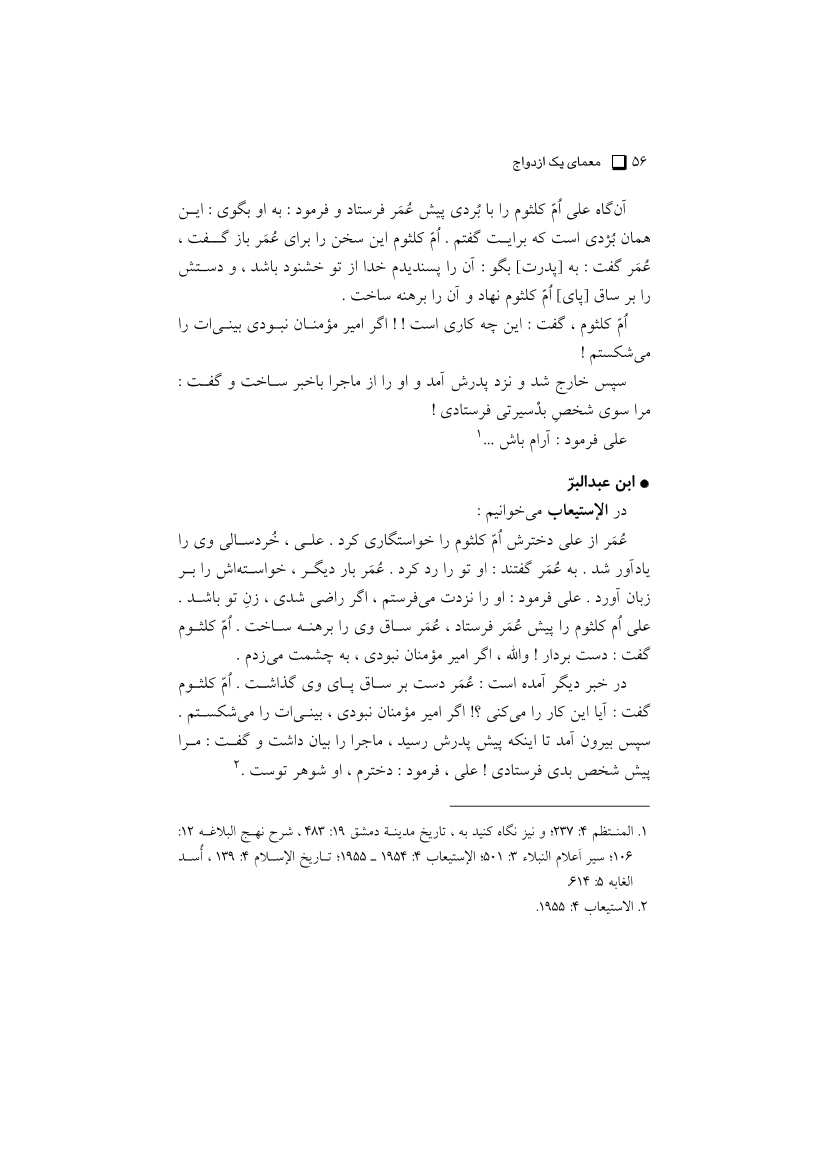 ۵۶ ❑ معمای یک ازدواج
آن‌گاه علی اُمّ کلثوم را با بُردی پیش عُمَر فرستاد و فرمود : به او بگوی : ایـن
همان بُرْدی است که برایـت گفتم . اُمّ کلثوم این سخن را برای عُمَر باز گــفت ،
عُمَر گفت : به [پدرت] بگو : آن را پسندیدم خدا از تو خشنود باشد ، و دسـتش
را بر ساق [پای] اُمّ کلثوم نهاد و آن را برهنه ساخت .
اُمّ کلثوم ، گفت : این چه کاری است ! ! اگر امیر مؤمنـان نبـودی بینـی‌ات را
می‌شکستم !
سپس خارج شد و نزد پدرش آمد و او را از ماجرا باخبر سـاخت و گفـت :
مرا سوی شخصِ بدْسیرتی فرستادی !
علی فرمود : آرام باش ...۱
● ابن عبدالبرّ
در الإستیعاب می‌خوانیم :
عُمَر از علی دخترش اُمّ کلثوم را خواستگاری کرد . علـی ، خُردسـالی وی را
یادآور شد . به عُمَر گفتند : او تو را رد کرد . عُمَر بار دیگـر ، خواسـته‌اش را بـر
زبان آورد . علی فرمود : او را نزدت می‌فرستم ، اگر راضی شدی ، زنِ تو باشـد .
علی اُم کلثوم را پیش عُمَر فرستاد ، عُمَر سـاق وی را برهنـه سـاخت . اُمّ کلثـوم
گفت : دست بردار ! والله ، اگر امیر مؤمنان نبودی ، به چشمت می‌زدم .
در خبر دیگر آمده است : عُمَر دست بر سـاق پـای وی گذاشـت . اُمّ کلثـوم
گفت : آیا این کار را می‌کنی ؟! اگر امیر مؤمنان نبودی ، بینـی‌ات را می‌شکسـتم .
سپس بیرون آمد تا اینکه پیش پدرش رسید ، ماجرا را بیان داشت و گفـت : مـرا
پیش شخص بدی فرستادی ! علی ، فرمود : دخترم ، او شوهر توست .۲
۱. المنـتظم ۴: ۲۳۷؛ و نیز نگاه کنید به ، تاریخ مدینـة دمشق ۱۹: ۴۸۳ ، شرح نهـج البلاغـه ۱۲:
۱۰۶؛ سیر اَعلام النبلاء ۳: ۵۰۱؛ الإستیعاب ۴: ۱۹۵۴ ـ ۱۹۵۵؛ تـاریخ الإسـلام ۴: ۱۳۹ ، اُسـد
الغابه ۵: ۶۱۴.
۲. الاستیعاب ۴: ۱۹۵۵.